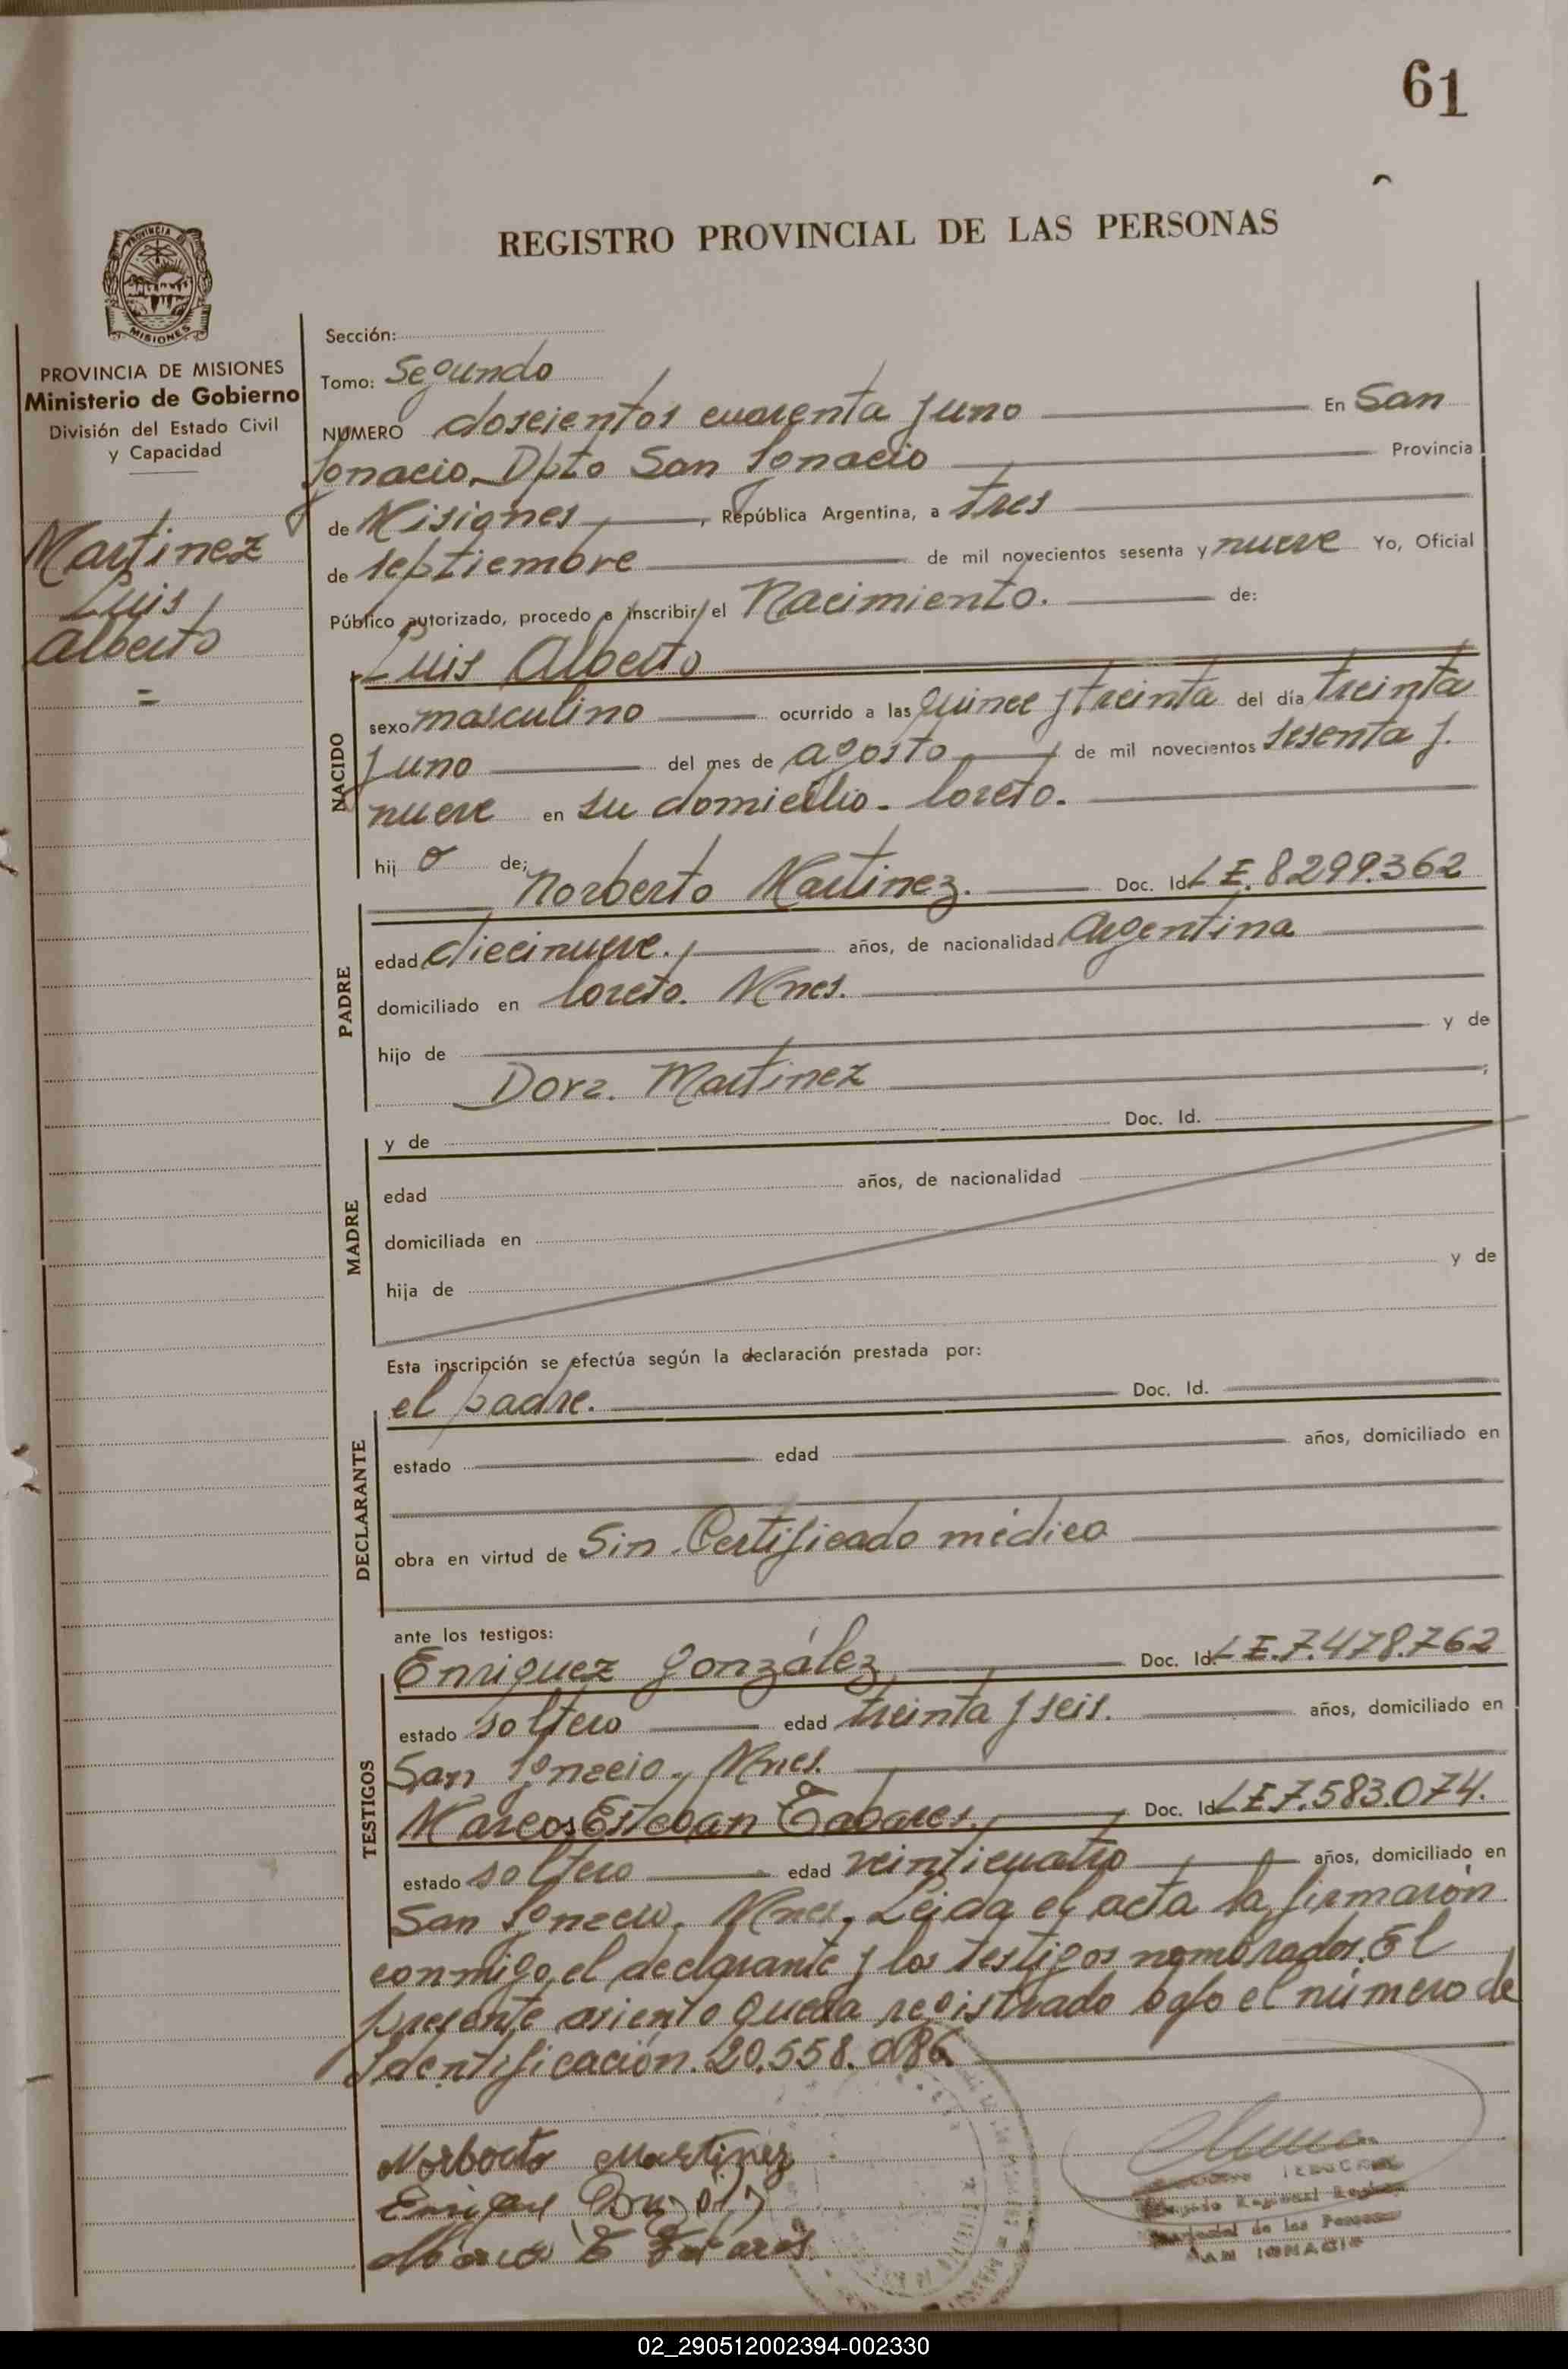 61
REGISTRO PROVINCIAL DE LAS PERSONAS
PROVINCIA DE
MISIONES
PROVINCIA DE MISIONES
Ministerio de Gobierno
División del Estado Civil
y Capacidad
Martinez
Luis
Alberto
=
Sección:
Tomo: Segundo
NUMERO doscientos cuarenta y uno En San
Ignacio, Dpto San Ignacio Provincia
de Misiones, República Argentina, a tres
de septiembre de mil novecientos sesenta y nueve Yo, Oficial
Público autorizado, procedo a inscribir el Nacimiento. de:
Luis Alberto
NACIDO
sexo masculino ocurrido a las quince y treinta del día treinta
y uno del mes de agosto de mil novecientos sesenta y
nueve en su domicilio - loreto.
hij o de;
Norberto Martinez. Doc. Id. L E. 8299.362
PADRE
edad diecinueve. años, de nacionalidad Argentina
domiciliado en loreto. Mnes.
hijo de y de
Dora. Martinez ;
MADRE
y de Doc. Id.
edad años, de nacionalidad
domiciliada en
hija de y de
Esta inscripción se efectúa según la declaración prestada por:
el padre. Doc. Id.
DECLARANTE
estado edad años, domiciliado en
obra en virtud de Sin Certificado médico
ante los testigos:
Enriquez González Doc. Id. L.E.7.478.762
TESTIGOS
estado soltero edad treinta y seis. años, domiciliado en
San Ignacio, Mnes.
Marcos Esteban Tabares. Doc. Id. L E 7.583.074.
estado soltero edad veinticuatro años, domiciliado en
San Ignacio. Mnes. Leida el acta la firmaron
conmigo, el declarante y los testigos nombrados. El
presente asiento queda registrado bajo el número de
Identificación. 20.558.086
Norberto Martinez
SAN IGNACIO
02_290512002394-002330